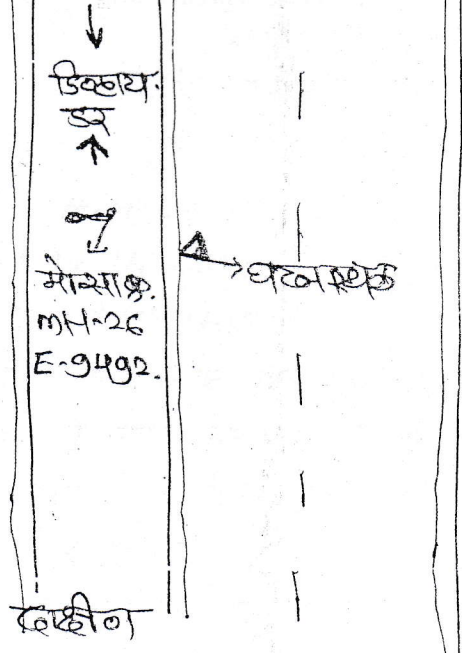 डिव्हाय.
डर
मोसाक्र.
MH-26
E-9492.
घटनास्थळ
दक्षीण